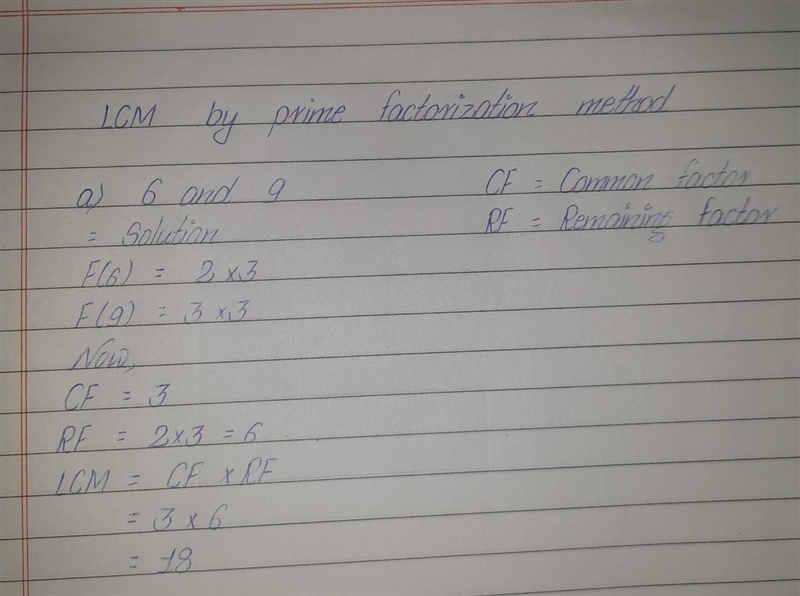 LCM by prime factorization method
a) 6 and 9
CF = Common factor
= Solution
RF = Remaining factor
F(6) = 2 x 3
F(9) = 3 x 3
Now,
CF = 3
RF = 2x3 = 6
LCM = CF x RF
= 3 x 6
= 18